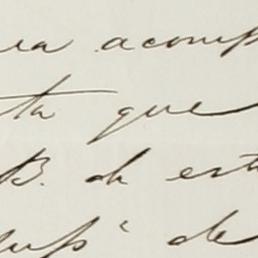 ra acomp
ta que
B. de est
de